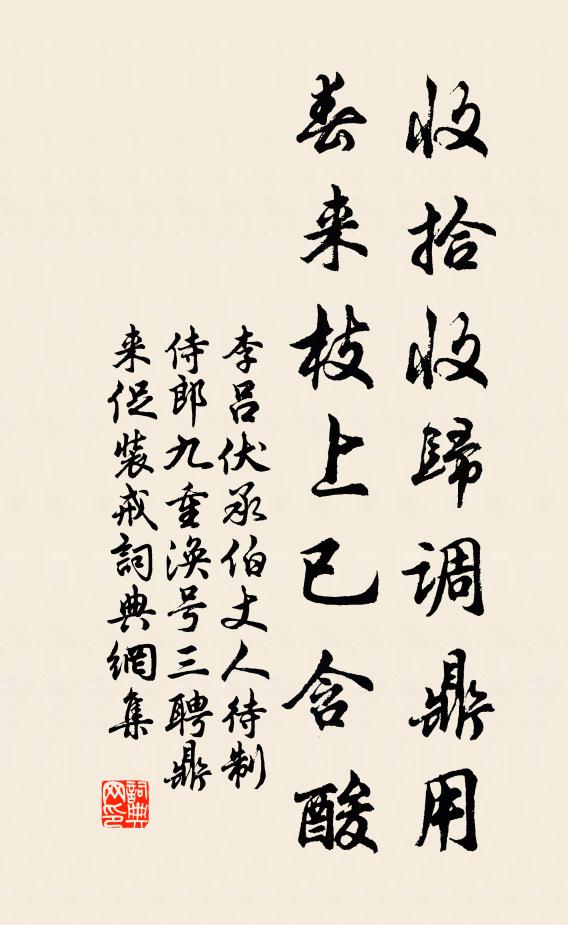 收拾收歸调鼎用
春来枝上已含酸
李吕伏承伯丈人待制
侍郎九重渙号三聘鼎
来促裝戒詞典網集
詞典网印